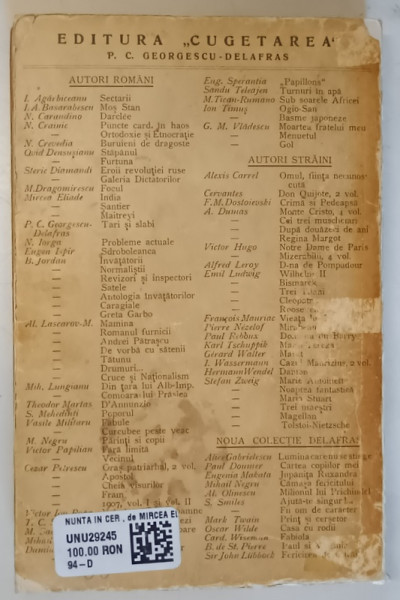 EDITURA „CUGETAREA"
P. C. GEORGESCU-DELAFRAS
AUTORI ROMÂNI
I. Agârbiceanu Sectarii
I. A. Basarabescu Moș Stan
N. Carandino Darclée
N. Crainic Puncte card. în haos
— Ortodoxie și Etnocrație
N. Crevedia Buruieni de dragoste
Ovid Densusianu Stăpânul
— Furtuna
Sterie Diamandi Eroii revoluției ruse
— Galeria Dictatorilor
M. Dragomirescu Focul
Mircea Eliade India
— Șantier
— Maitreyi
P. C. Georgescu-Delafras Țari și slabi
N. Iorga Probleme actuale
Eugen Ispir Sdroboleanca
B. Jordan Învățătorii
— Normaliștii
— Revizori și Inspectori
— Satele
— Antologia Învățătorilor
— Caragiale
— Greta Garbo
Al. Lascarov-M. Mamina
— Romanul furnicii
— Andrei Pătrașcu
— De vorbă cu sătenii
— Tătunu
— Drumuri...
— Cruce și Naționalism
Mih. Lungianu Din țara lui Alb-Imp.
— Comoara lui Prâslea
Theodor Martas D'Annunzio
S. Mehedinți Poporul
Vasile Militaru Fabule
— Curcubee peste veac
M. Negru Părinți și copii
Victor Papilian Fără limită
— Vecinul
Cezar Petrescu Graș patriarhal, 2 vol.
— Apostol
— Cheia visurilor
— Fram
— 1907, vol. I și vol. II
Victor Ion Popa
T. C.
M.
Mihail
Damian
Eug. Sperantia „Papillons"
Sandu Teleajen Turnuri în apă
M. Tican-Rumano Sub soarele Africei
Ion Timuș Ogio-San
— Basme japoneze
G. M. Vlădescu Moartea fratelui meu
— Menuetul
— Gol
AUTORI STRĂINI
Alexis Carrel Omul, ființa necunoscută
Cervantes Don Quijote, 2 vol.
F. M. Dostoievski Crimă și Pedeapsă
A. Dumas Monte Cristo, 4 vol.
— Cei trei mușchetari
— După douăzeci de ani
— Regina Margot
Victor Hugo Notre Dame de Paris
— Mizerabilii, 4 vol.
Alfred Leroy D-na de Pompadour
Emil Ludwig Wilhelm II
— Bismarck
— Trei
— Cleopatra
— Roosevelt
François Mauriac Vieața
Pierre Nezelof Mirabeau
Paul Reboux
Karl Tschuppik Maria
Gérard Walter Marat
I. Wassermann Cazul Maurizius, 2 vol.
Hermann Wendel Danton
Stefan Zweig Maria Antoineta
— Noaptea fantastică
— Maria Stuart
— Trei maeștri
— Magellan
— Tolstoi-Nietzsche
NOUA COLECȚIE DELAFRAS
Alice Gabrielescu Lumina care nu se stinge
Paul Doumer Cartea copiilor mei
Eugenia Mobata Jupânița Rozandra
Mihail Negru Cămașa fericitului
Al. Olmescu Milionul lui Prichindel
S. Smiles Ajută-te singur
— Fii om de caracter
Mark Twain Prinț și cerșetor
Oscar Wilde Casa cu rodii
Card. Wiseman Fabiola
B. de St. Pierre Paul și
Sir John Lübbock Fericirea
NUNTA IN CER , de MIRCEA EL
UNU29245
100.00 RON
94-D